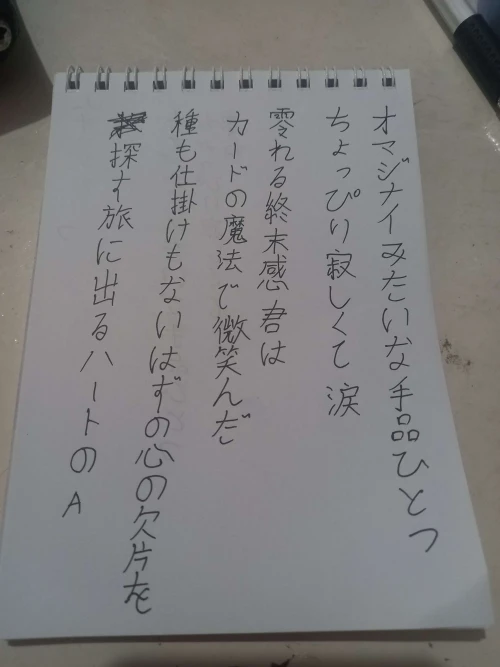 オマジナイみたいな手品ひとつ
ちょっぴり寂しくて涙
零れる終末感君は
カードの魔法で微笑んだ
種も仕掛けもないはずの心の欠片を
探す旅に出るハートのA